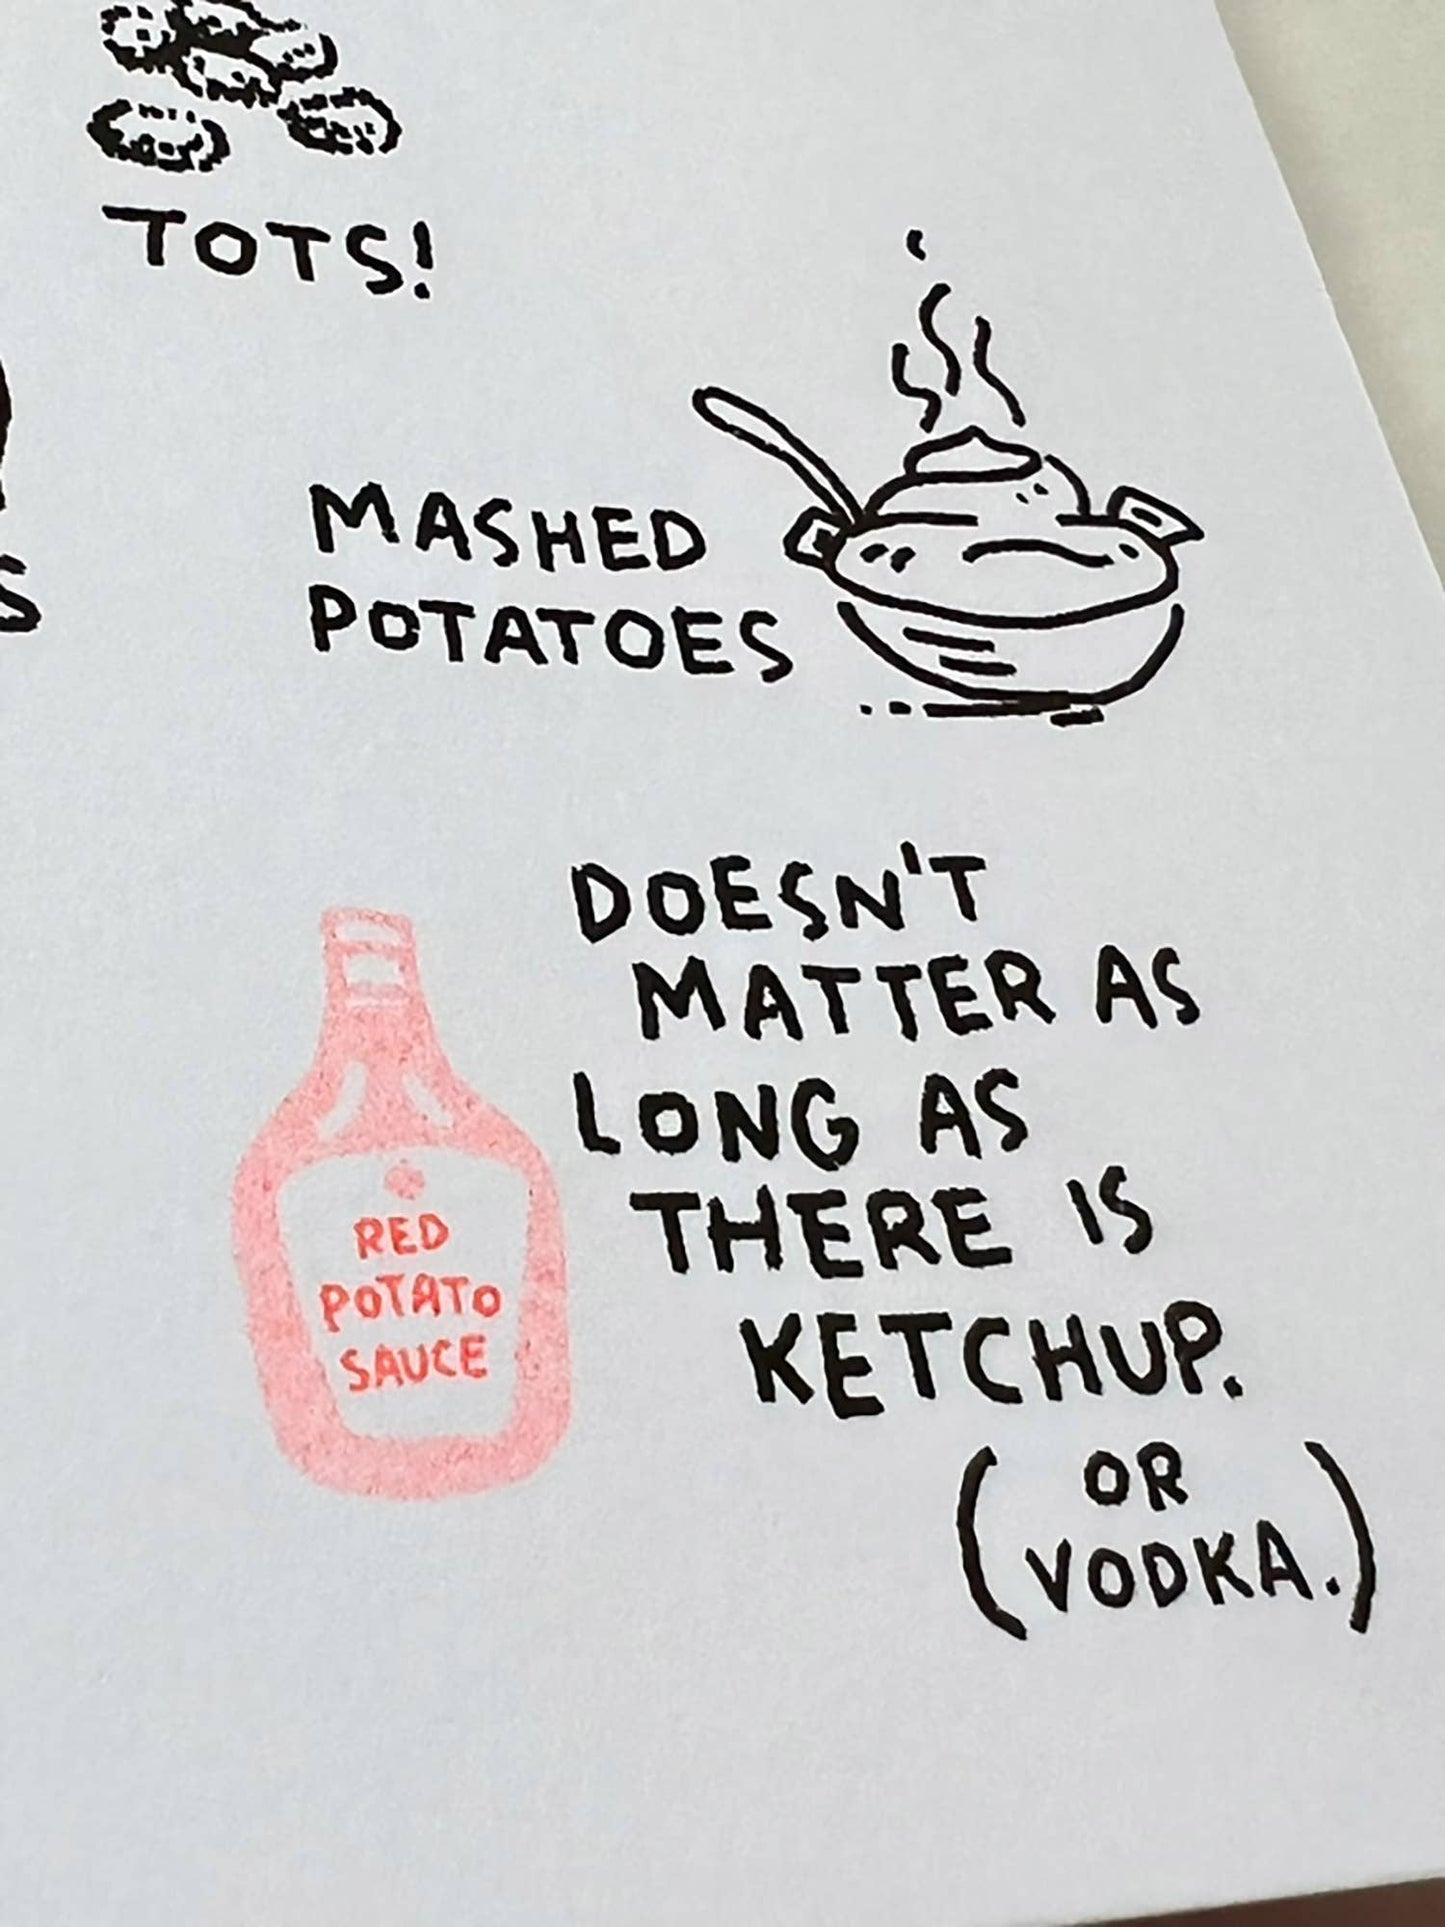 TOTS!
MASHED
POTATOES
DOESN'T
MATTER AS
LONG AS
THERE IS
KETCHUP.
(OR
VODKA.)
RED
POTATO
SAUCE